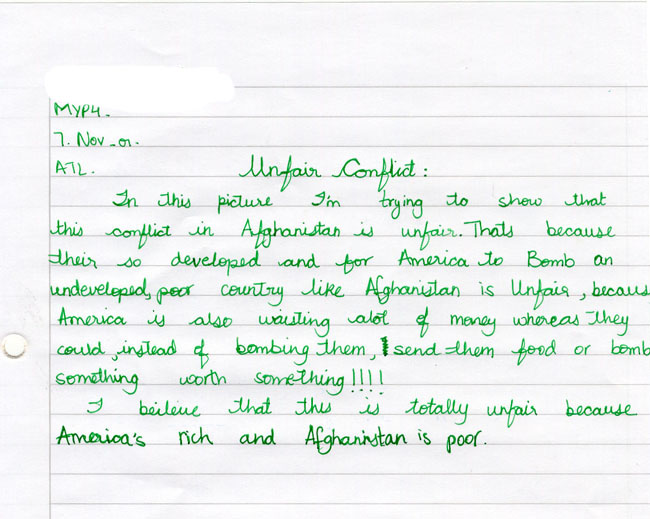 MYP4.
7. Nov_01.
ATL.
Unfair Conflict:
In this picture I'm trying to show that
this conflict in Afghanistan is unfair. Thats because
their so developed and for America to Bomb an
undeveloped, poor country like Afghanistan is Unfair, becaus
America is also waisting alot of money whereas they
could, instead of bombing them, send them food or bomb
something worth something!!!!
I beileve that this is totally unfair because
America's rich and Afghaninstan is poor.